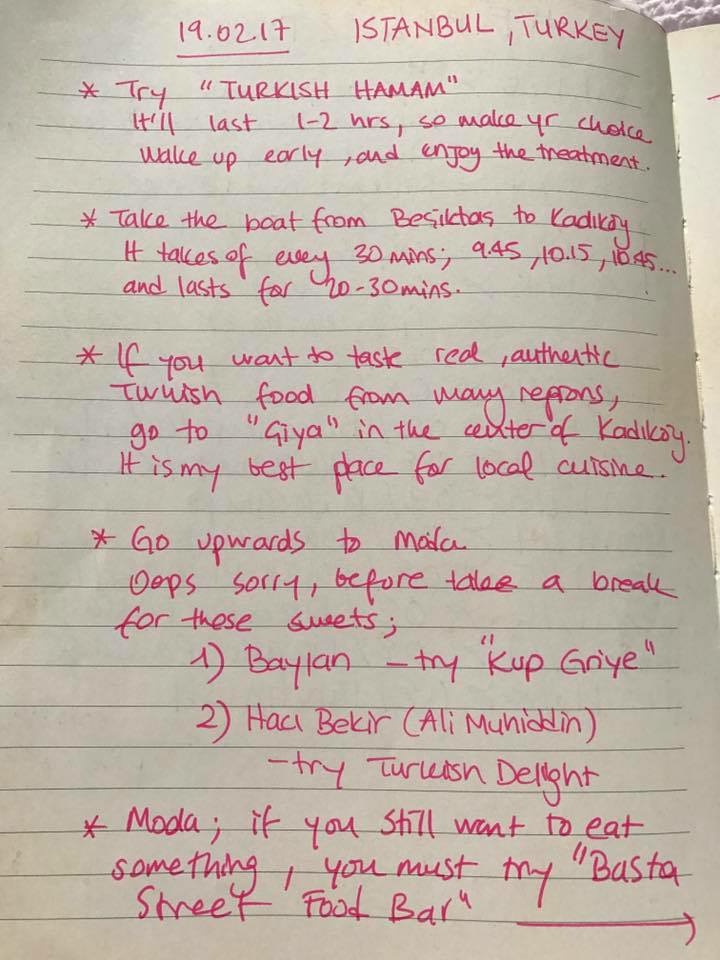 19.02.17 ISTANBUL, TURKEY
* Try "TURKISH HAMAM"
It'll last 1-2 hrs, so make yr choice
Wake up early, and enjoy the treatment.
* Take the boat from Beşiktaş to Kadıköy
It takes of every 30 mins; 9.45, 10.15, 10.45...
and lasts for 20-30 mins.
* If you want to taste real, authentic
Turkish food from many regions,
go to "Çiya" in the center of Kadıköy.
It is my best place for local cuisine.
* Go upwards to Moda
Oops sorry, before take a break
for these sweets;
1) Baylan - try "Kup Griye"
2) Hacı Bekir (Ali Muhiddin)
- try Turkish Delight
* Moda; if you still want to eat
something, you must try "Basta
Street Food Bar" →